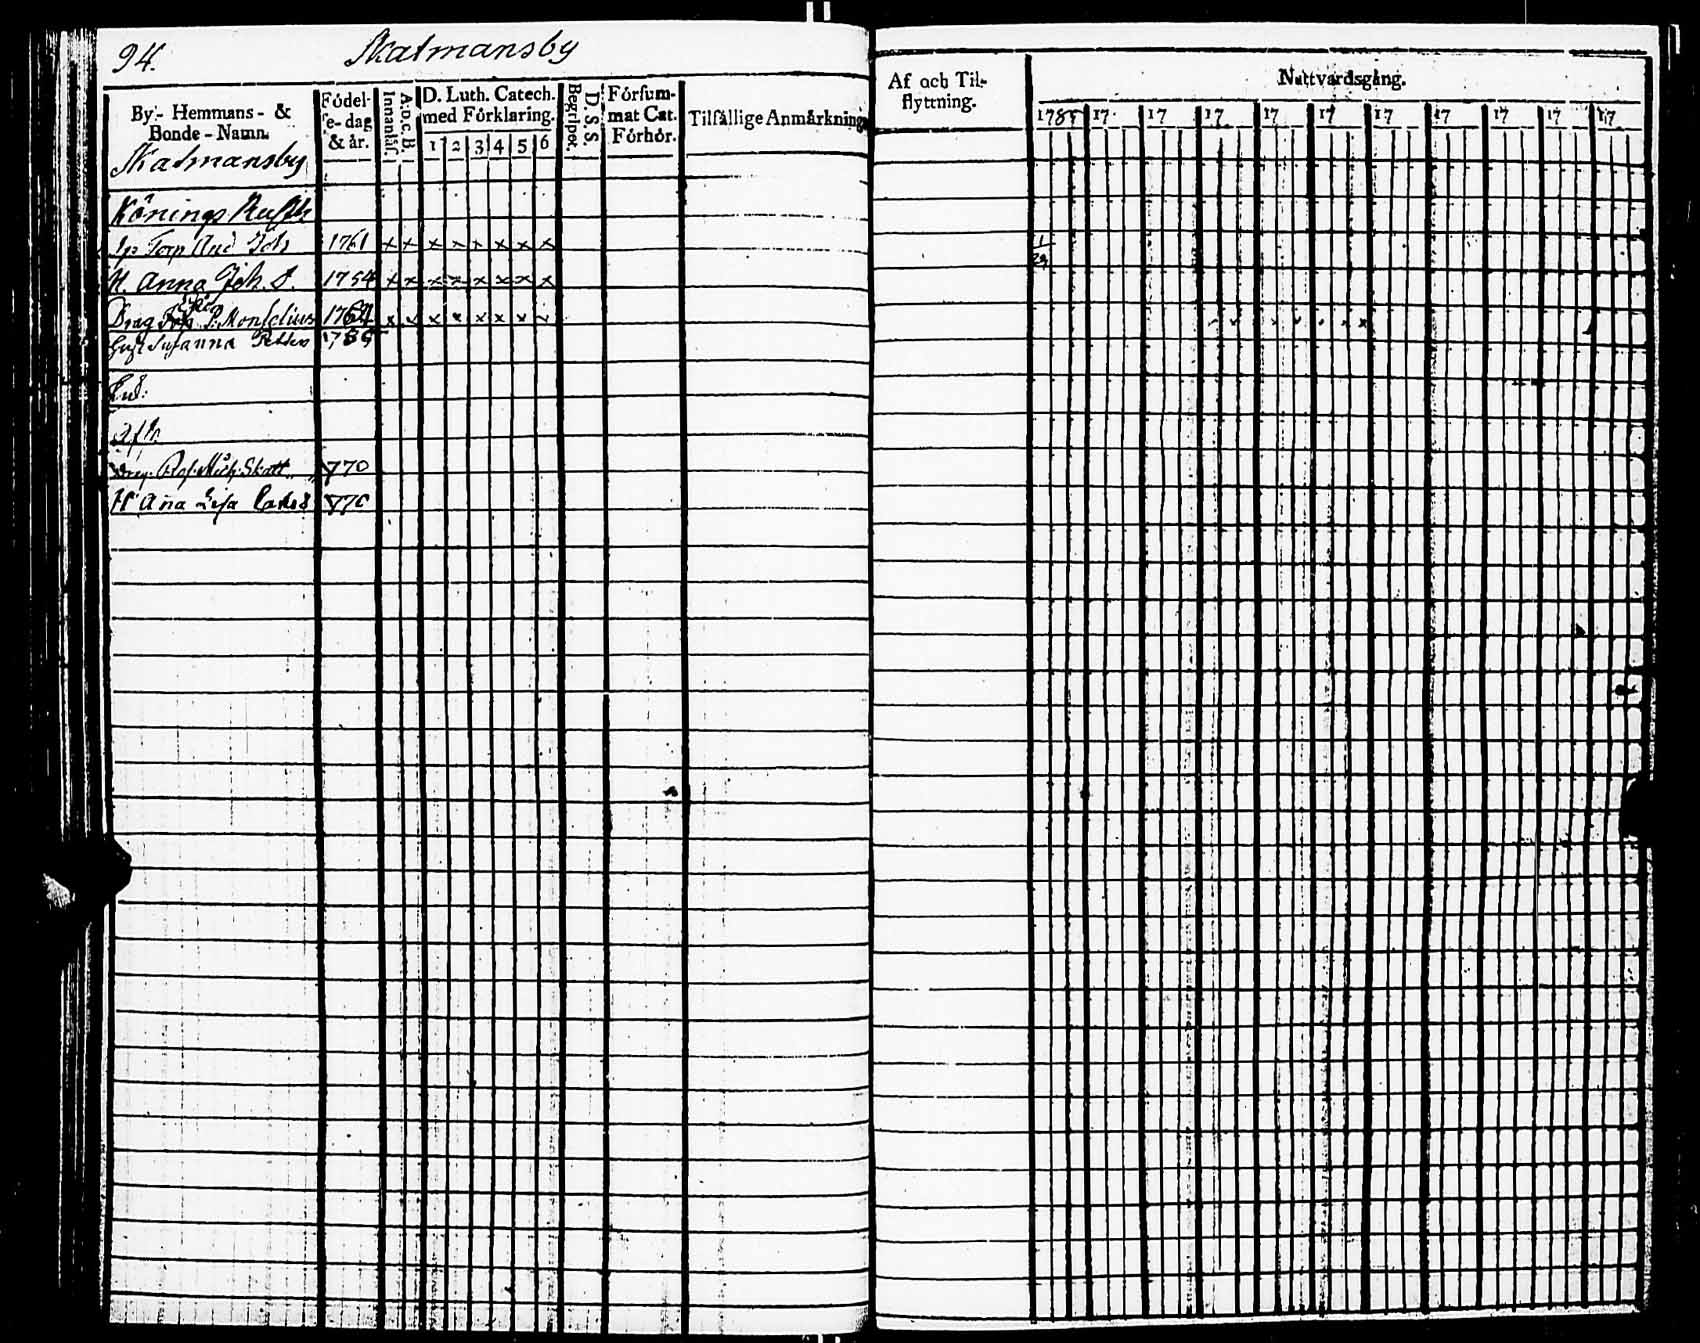 94.
Skatmansby
By- Hemmans- &
Bonde-Namn.
Födel-
se-dag
& år.
Innanläs.
A. b. c. B.
D. Luth. Catech.
med Förklaring.
1 2 3 4 5 6
Begripet.
D. S. S.
Försum-
mat Cat.
Förhör.
Tilfällige Anmärkning
Skatmansby
Konings Rusth
And Joh 1761 x x x x x x x x
H. Anna Joh. d. 1754 x x x x x x x x
Drag P. Monselius 1764 x x x x x x x x
Susanna Petters 1785
Enk:
Afsk
Drag. Mich. Skatt 1770
H Aña Lisa 1770
Af och Til-
flyttning.
Nattvardsgång.
1785 17 17 17 17 17 17 17 17 17 17
1
29